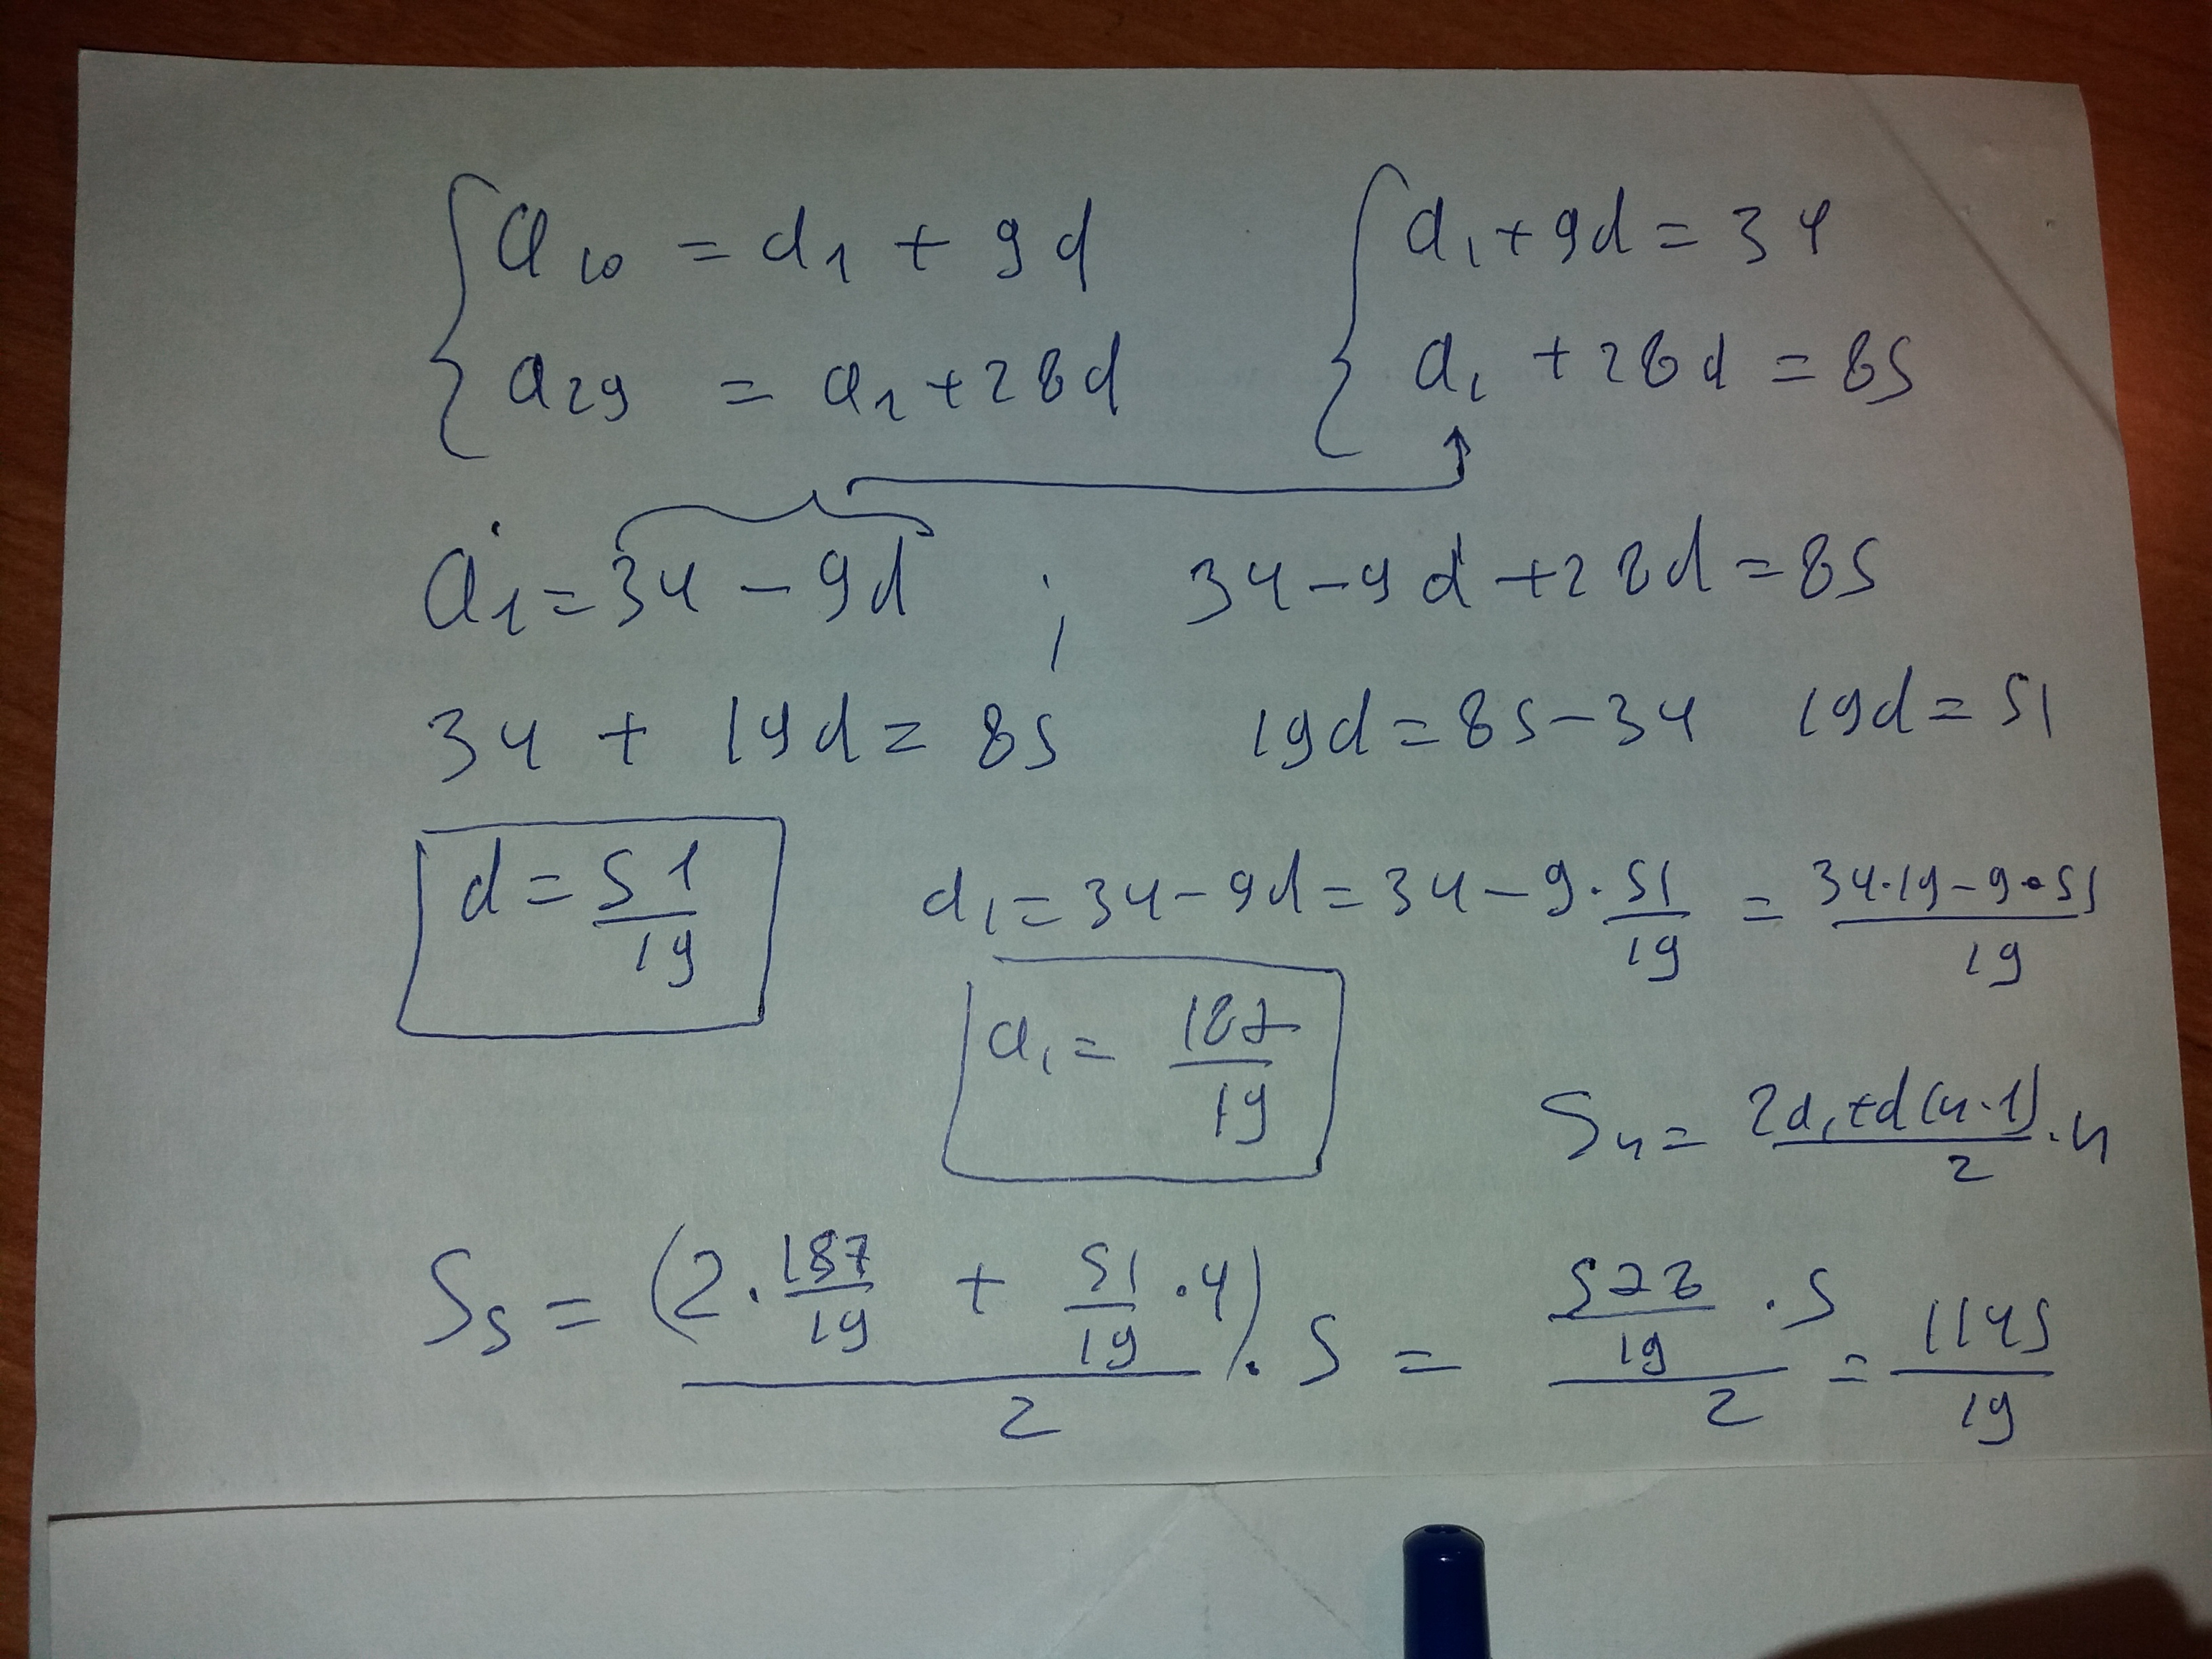 a₁₀ = a₁ + 9d    a₁ + 9d = 34
a₂₉ = a₁ + 28d    a₁ + 28d = 85
a₁ = 34 - 9d ; 34 - 9d + 28d = 85
34 + 19d = 85    19d = 85 - 34    19d = 51
d = 51/19    a₁ = 34 - 9d = 34 - 9 · 51/19 = (34·19 - 9·51)/19
a₁ = 187/19
Sₙ = (2a₁ + d(n-1))/2 · n
S₅ = (2 · 187/19 + 51/19 · 4)/2 · 5 = (578/19 · 5)/2 = 1145/19